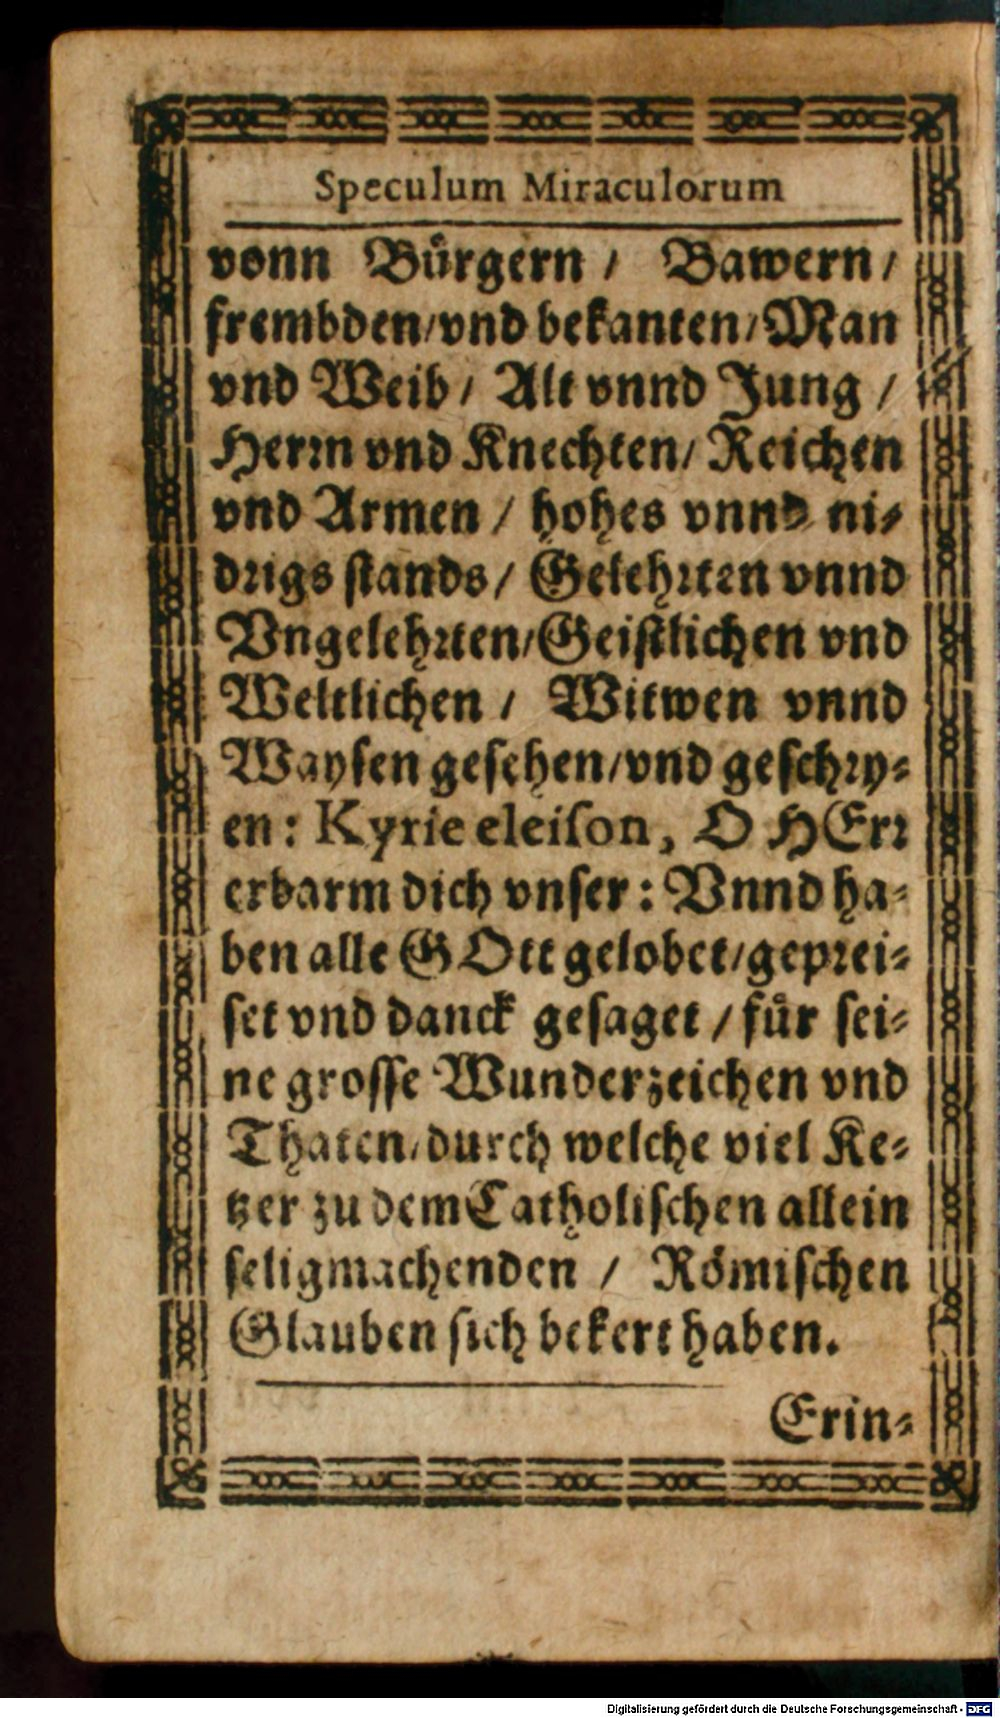 Speculum Miraculorum
vonn Bürgern / Bawern /
frembden/vnd bekanten/Man
vnd Weib / Alt vnnd Jung /
Herrn vnd Knechten/ Reichen
vnd Armen / hohes vnnd ni-
drigs stands / Gelehrten vnnd
Vngelehrten/Geistlichen vnd
Weltlichen / Witwen vnnd
Waysen gesehen/vnd geschry-
en: Kyrie eleison, O HErr
erbarm dich vnser: Vnnd ha-
ben alle GOtt gelobet/geprei-
set vnd danck gesaget / für sei-
ne grosse Wunderzeichen vnd
Thaten/durch welche viel Ke-
tzer zu dem Catholischen allein
seligmachenden / Römischen
Glauben sich bekert haben.
Erin-
Digitalisierung gefördert durch die Deutsche Forschungsgemeinschaft - DFG